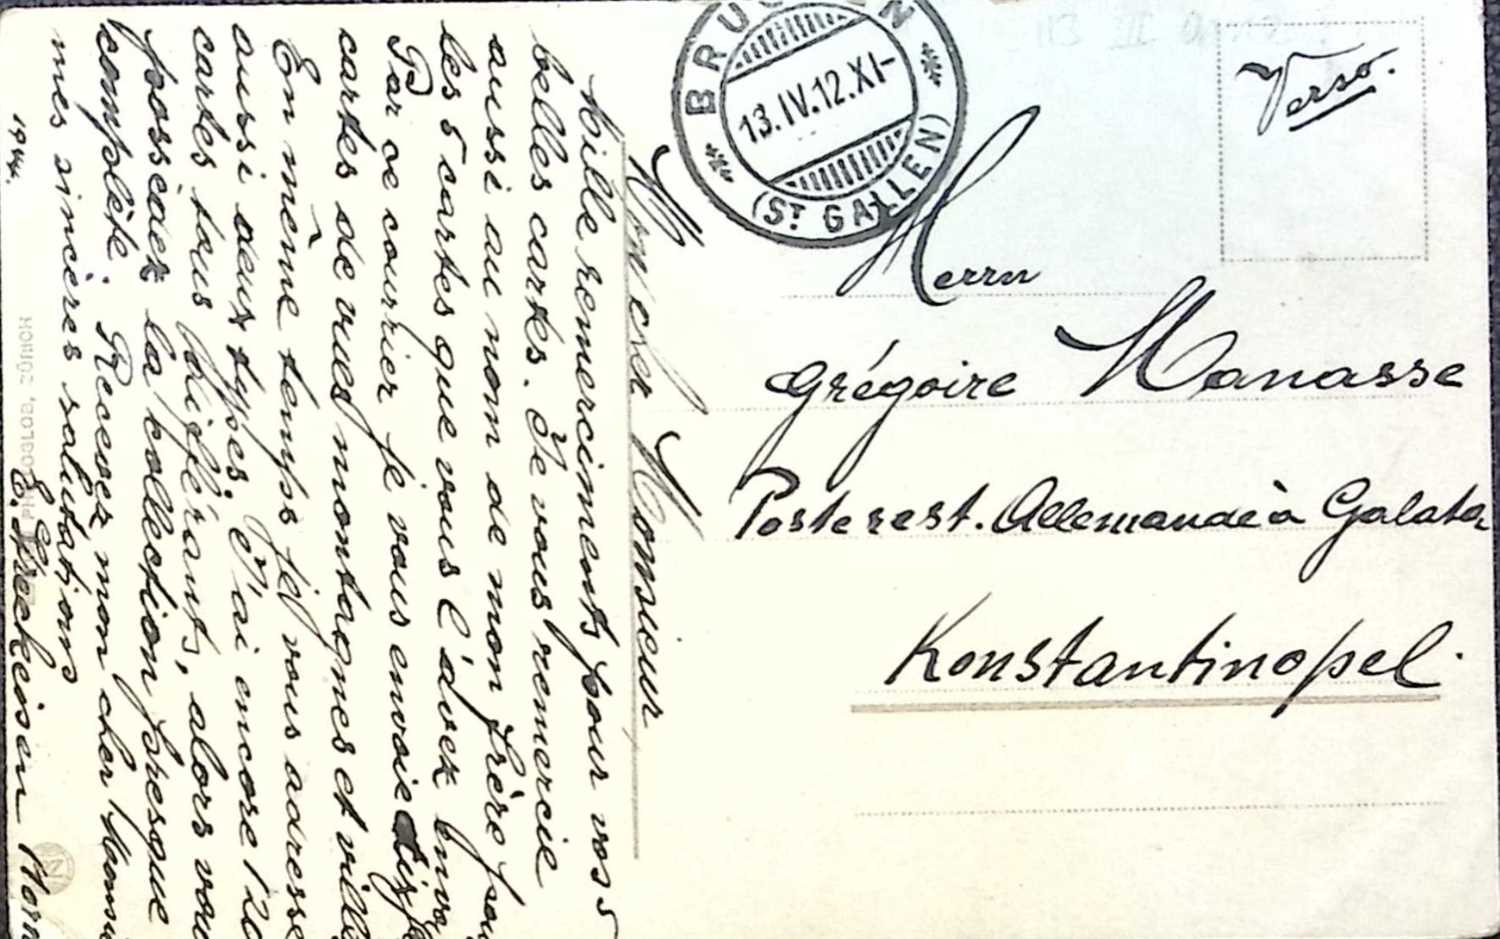 Mon cher Monsieur
Mille remerciments pour vos 5
belles cartes. Je vous remercie
aussi au nom de mon frère pour
les 5 cartes que vous l'avez
Par ce courrier je vous envoie
cartes de vues montagnes et ville
En même temps je vous adresse
aussi deux types. J'ai encore 120
cartes tous différants, alors vous
possédez la collection presque
complète. Recevez mon cher
mes sincères salutations
E.
PHOTOGLOB, ZÜRICH
BRUGGEN
13.IV.12.XI-
(ST GALLEN)
Verso.
Herrn
Grégoire Manasse
Poste rest. Allemande à Galata
Konstantinopel.